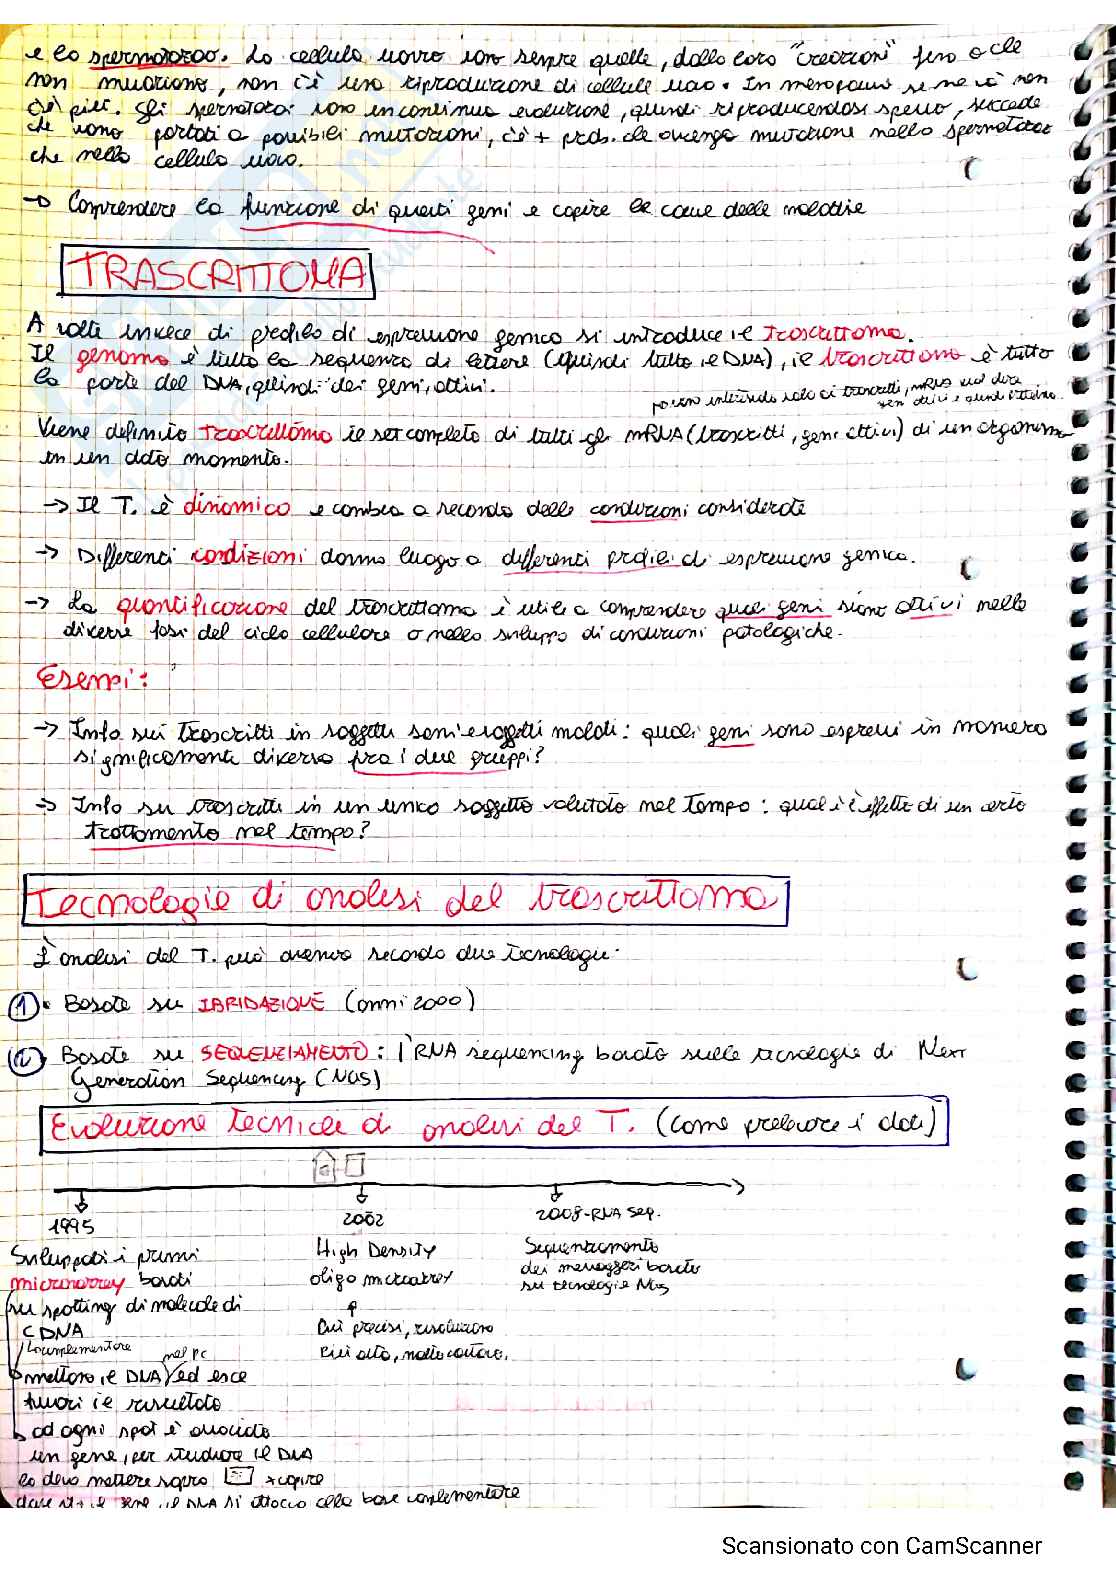 e lo spermatozoo. La cellula uovo sono sempre quelle, dalla loro "creazione" fino a che
non muoiono, non c'è una riproduzione di cellule uovo. In menopausa se ne va non
c'è più. Gli spermatozoi sono in continua evoluzione, quindi riproducendosi spesso, succede
che sono portati a possibili mutazioni, c'è + prob. che avvenga mutazione nello spermatozoo
che nella cellula uovo.
→ Comprendere la funzione di questi geni e capire le cause delle malattie
TRASCRITTOMA
A volte invece di profilo di espressione genica si introduce il trascrittoma.
Il genoma è tutta la sequenza di lettere (quindi tutto il DNA), il trascrittoma è tutta
la parte del DNA, quindi dei geni, attivi.
possono interessando solo ai trascritti, mRNA vuol dire
geni attivi e quindi
Viene definito trascrittoma il set completo di tutti gli mRNA (trascritti, geni attivi) di un organismo
in un dato momento.
→ Il T. è dinamico e cambia a seconda delle condizioni considerate
→ Differenti condizioni danno luogo a differenti profili di espressione genica.
→ La quantificazione del trascrittoma è utile a comprendere quali geni siano attivi nelle
diverse fasi del ciclo cellulare o nello sviluppo di condizioni patologiche.
Esempi:
→ Info sui trascritti in soggetti sani e soggetti malati: quali geni sono espressi in maniera
significamente diversa fra i due gruppi?
→ Info su trascritti in un unico soggetto valutato nel tempo: qual è l'effetto di un certo
trattamento nel tempo?
Tecnologie di analisi del trascrittoma
L'analisi del T. può avvenire secondo due tecnologie:
① • Basate su IBRIDAZIONE (anni 2000)
② Basate su SEQUENZIAMENTO: l'RNA sequencing basato sulle tecnologie di Next
Generation Sequencing (NGS)
Evoluzione tecniche di analisi del T. (come prelevare i dati)
1995
2002
2008-RNA seq.
Sviluppati i primi
microarray basati
su spotting di molecole di
cDNA
complementare
nel pc
mettono il DNA ed esce
fuori il risultato
ad ogni spot è associato
un gene, per studiare il DNA
lo devo mettere sopra + capire
dove sta il gene, il DNA si attacca alla base complementare
High Density
oligo microarray
↑
Più precisi, risoluzione
più alta, molto costosi.
Sequenziamento
dei messaggeri basato
su tecnologie NGS
Scansionato con CamScanner